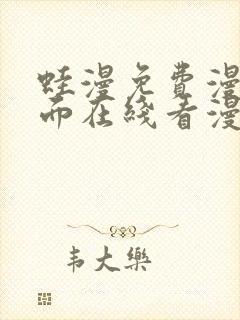 蛙漫免费漫
而在线看漫
韦大乐